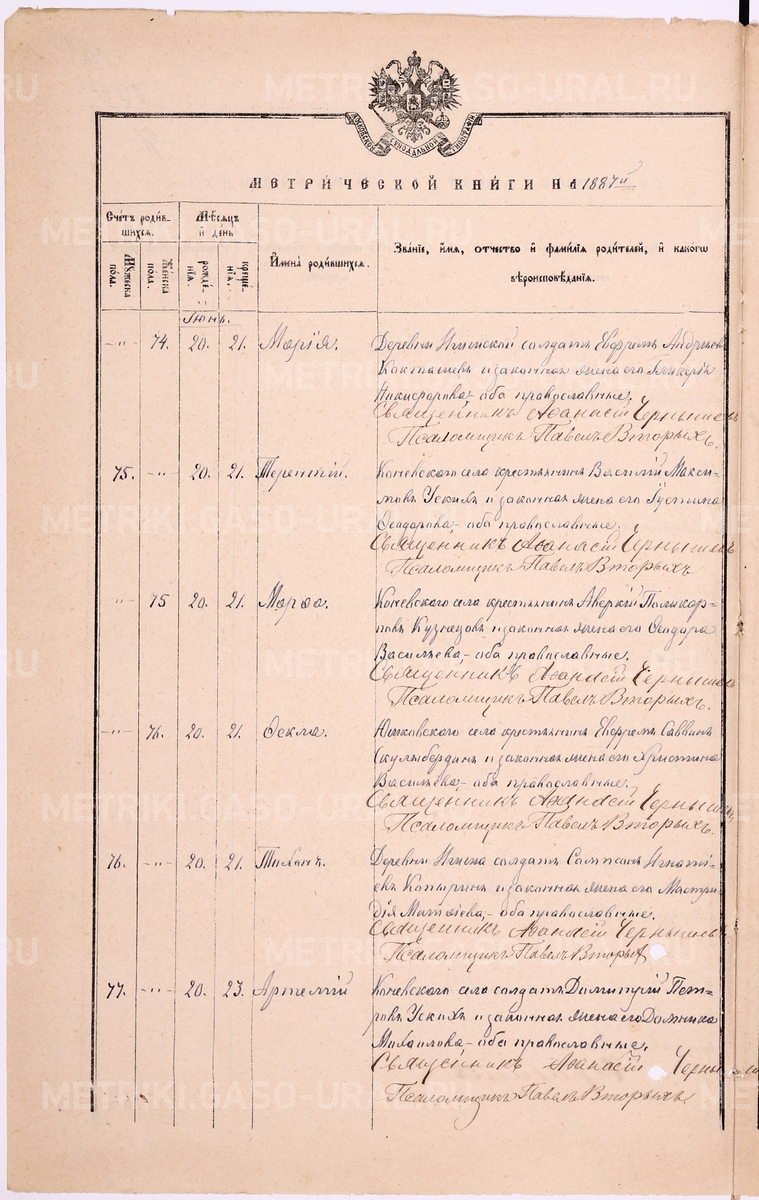 МОСКОВСКОЙ СУНОДАЛЬНОЙ ТИПОГРАФІИ
МЕТРИЧЕСКОЙ КНИГИ НА 1887й
Счетъ родив-
шихся.
Мужеска
пола.
Женска
пола.
Мѣсяцъ
и день
рожде-
нія.
креще-
нія.
Имена родившихся.
Званіе, имя, отчество и фамилія родителей, и какого
вѣроисповѣданія.
Іюнь.
-"- 74. 20. 21. Марія. Деревни Игишской солдатъ Евфремъ Андріевъ
и законная жена его Гликерія
Никифорова, оба православные.
Священникъ Аѳанасій Чернышевъ
Псаломщикъ Павелъ Вторыхъ.
75. -"- 20. 21. Терентій. Коневского села крестьянинъ Василій Макси-
мовъ Ускихъ и законная жена его Іустина
Ѳеодорова, оба православные.
Священникъ Аѳанасій Чернышевъ
Псаломщикъ Павелъ Вторыхъ
-"- 75 20. 21. Марѳа. Коневского села крестьянинъ Аверкій Поликар-
повъ Кузнецовъ и законная жена его Ѳеодора
Васильева, оба православные.
Священникъ Аѳанасій Чернышевъ
Псаломщикъ Павелъ Вторыхъ.
-"- 76. 20. 21. Ѳекла. Юшковского села крестьянинъ Евфремъ Саввинъ
Скулыбердинъ и законная жена его Христина
Васильева, оба православные.
Священникъ Аѳанасій Чернышевъ
Псаломщикъ Павелъ Вторыхъ.
76. -"- 20. 21. Тихонъ. Деревни Игиша солдатъ Сампсонъ Игнаті-
евъ Копыринъ и законная жена его Мастри-
дія Матѳіева, оба православные.
Священникъ Аѳанасій Чернышевъ
Псаломщикъ Павелъ Вторых
77. -"- 20. 23. Артемій Коневского села солдатъ Димитрій Пет-
ровъ Ускихъ и законная жена его Домника
Михаилова, оба православные.
Священникъ Аѳанасій Черны
Псаломщикъ Павелъ Вторыхъ.
METRIKI.GASO-URAL.RU